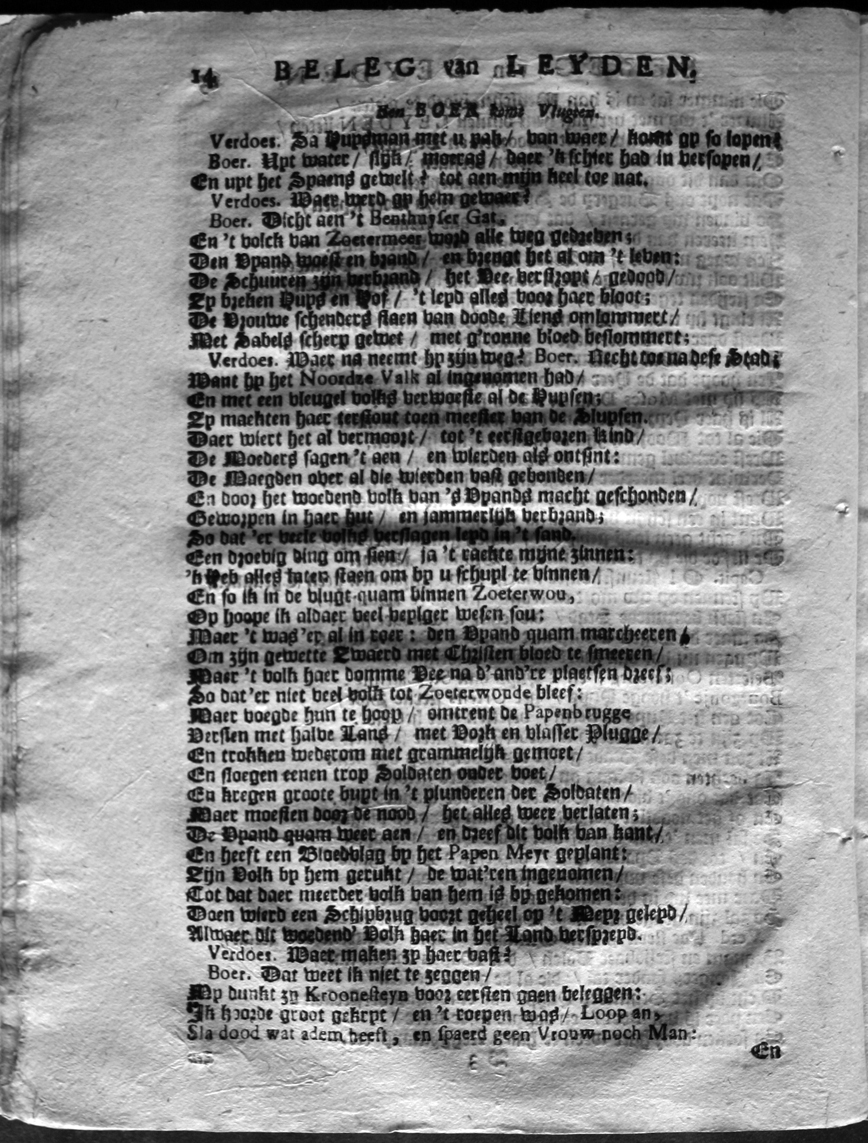 14 BELEG van LEYDEN.
Een BOER komt Vlugten.
Verdoes. Sa Huysman met u pak / van waer / komt gy so lopen?
Boer. Uyt water / slijk / moeras / daer 'k schier had in versopen /
En uyt het Spaens gewelt? tot aen mijn keel toe nat.
Verdoes. Waer werd gy hem gewaer?
Boer. Dicht aen 't Benthuyser Gat,
En 't volck van Zoetermeer word alle weg gedreven;
Den Vyand woest en brand / en brengt het al om 't leven:
De Schuuren zijn verbrand / het Vee verstropt / gedood /
Zy breken Huys en Hof / 't leyd alles voor haer bloot;
De Vrouwe schenders staen van doode Liens omlommert /
Met Sabels scherp gewet / met g'ronne bloed beslommert:
Verdoes. Waer na neemt hy zijn weg? Boer. Recht toe na dese Stad;
Want hy het Noordze Valk al ingenomen had /
En met een vleugel volks verwoeste al de Huysen;
Zy machten haer terstont toen meester van de Sluysen.
Daer wiert het al vermoort / tot 't eerstgeboren kind /
De Moeders sagen 't aen / en wierden als ontsint:
De Maegden over al die wierden vast gebonden /
En door het woedend volk van 's Vyands macht geschonden /
Geworpen in haer hut / en jammerlijk verbrand;
So dat 'er veele volks verslagen leyd in 't sand.
Een droevig ding om sien / ja 't raekte mijne zinnen:
'k Heb alles laten staen om by u schuyl te vinnen /
En so ik in de vlugt quam binnen Zoeterwou,
Op hoope ik aldaer veel veyliger wesen sou:
Maer 't was 'er al in roer: den Vyand quam marcheeren,
Om zijn gewette Zwaerd met Christen bloed te smeeren /
Maer 't volk haer domme Vee na d'and're plaetsen dreef;
So dat 'er niet veel volk tot Zoeterwoude bleef:
Maer voegde hun te hoop / omtrent de Papenbrugge
Versien met halve Lans / met Vork en vlasser Plugge /
En trokken wederom met grammelijk gemoet /
En sloegen eenen trop Soldaten onder voet /
En kregen groote buyt in 't plunderen der Soldaten /
Maer moesten door de nood / het alles weer verlaten;
De Vyand quam weer aen / en dreef dit volk van kant /
En heeft een Bloedvlag by het Papen Meyr geplant:
Zijn Volk by hem gerukt / de wat'ren ingenomen /
Tot dat daer meerder volk van hem is by gekomen:
Doen wierd een Schipbrug voort geheel op 't Meyr geleyd /
Alwaer dit woedend' Volk haer in het Land verspreyd.
Verdoes. Waer maken zy haer vast?
Boer. Dat weet ik niet te zeggen /
My dunkt zy Kroonesteyn voor eersten gaen beleggen:
Ik hoorde groot gekryt / en 't roepen was / Loop an,
Sla dood wat adem heeft, en spaerd geen Vrouw noch Man:
En